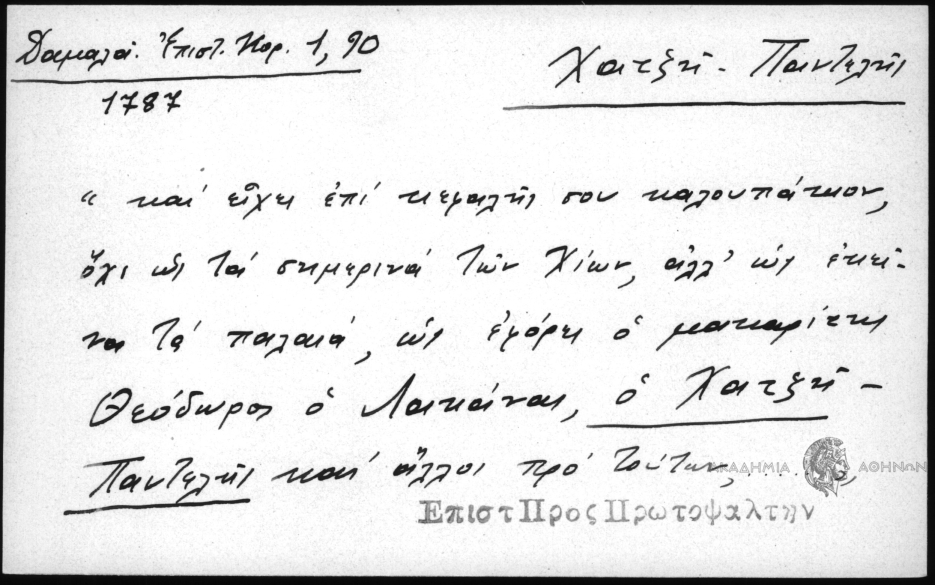 Δαμαλᾶ. Ἐπιστ. Κορ. 1, 90
Χατζῆ - Παντελῆς
1787
" καί εἶχες ἐπί κεφαλῆς σου καλουπάκιον,
ὄχι ὡς τά σημερινά τῶν Χίων, ἀλλ' ὡς ἐκεῖ-
να τά παλαιά, ὡς ἐφόρει ὁ μακαρίτης
Θεόδωρος ὁ Λακάνας, ὁ Χατζῆ -
Παντελῆς καί ἄλλοι πρό τούτων, .....
ΑΚΑΔΗΜΙΑ ΑΘΗΝΩΝ
Επιστ Προς Πρωτοψαλτην